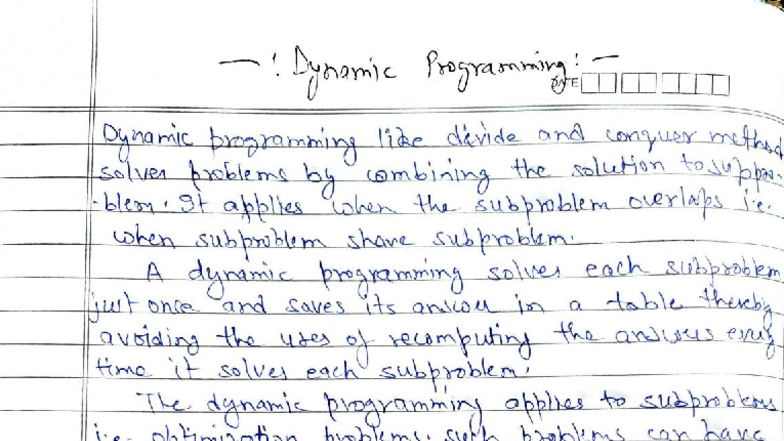 —: Dynamic Programming :—
DATE
Dynamic programming like divide and conquer method
solves problems by combining the solution to suppro-
-blem. It applies when the subproblem overlaps i.e.
when subproblem share subproblem.
A dynamic programming solves each subproblem
just once and saves its answer in a table thereby
avoiding the uses of recomputing the answers every
time it solves each subproblem.
The dynamic programming applies to subproblems
i.e. optimization problems. such problems can have